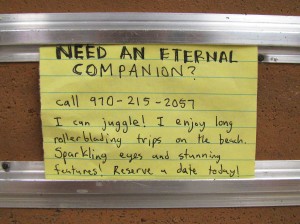 NEED AN ETERNAL
COMPANION?
call 970-215-2057
I can juggle! I enjoy long
rollerblading trips on the beach.
Sparkling eyes and stunning
features! Reserve a date today!